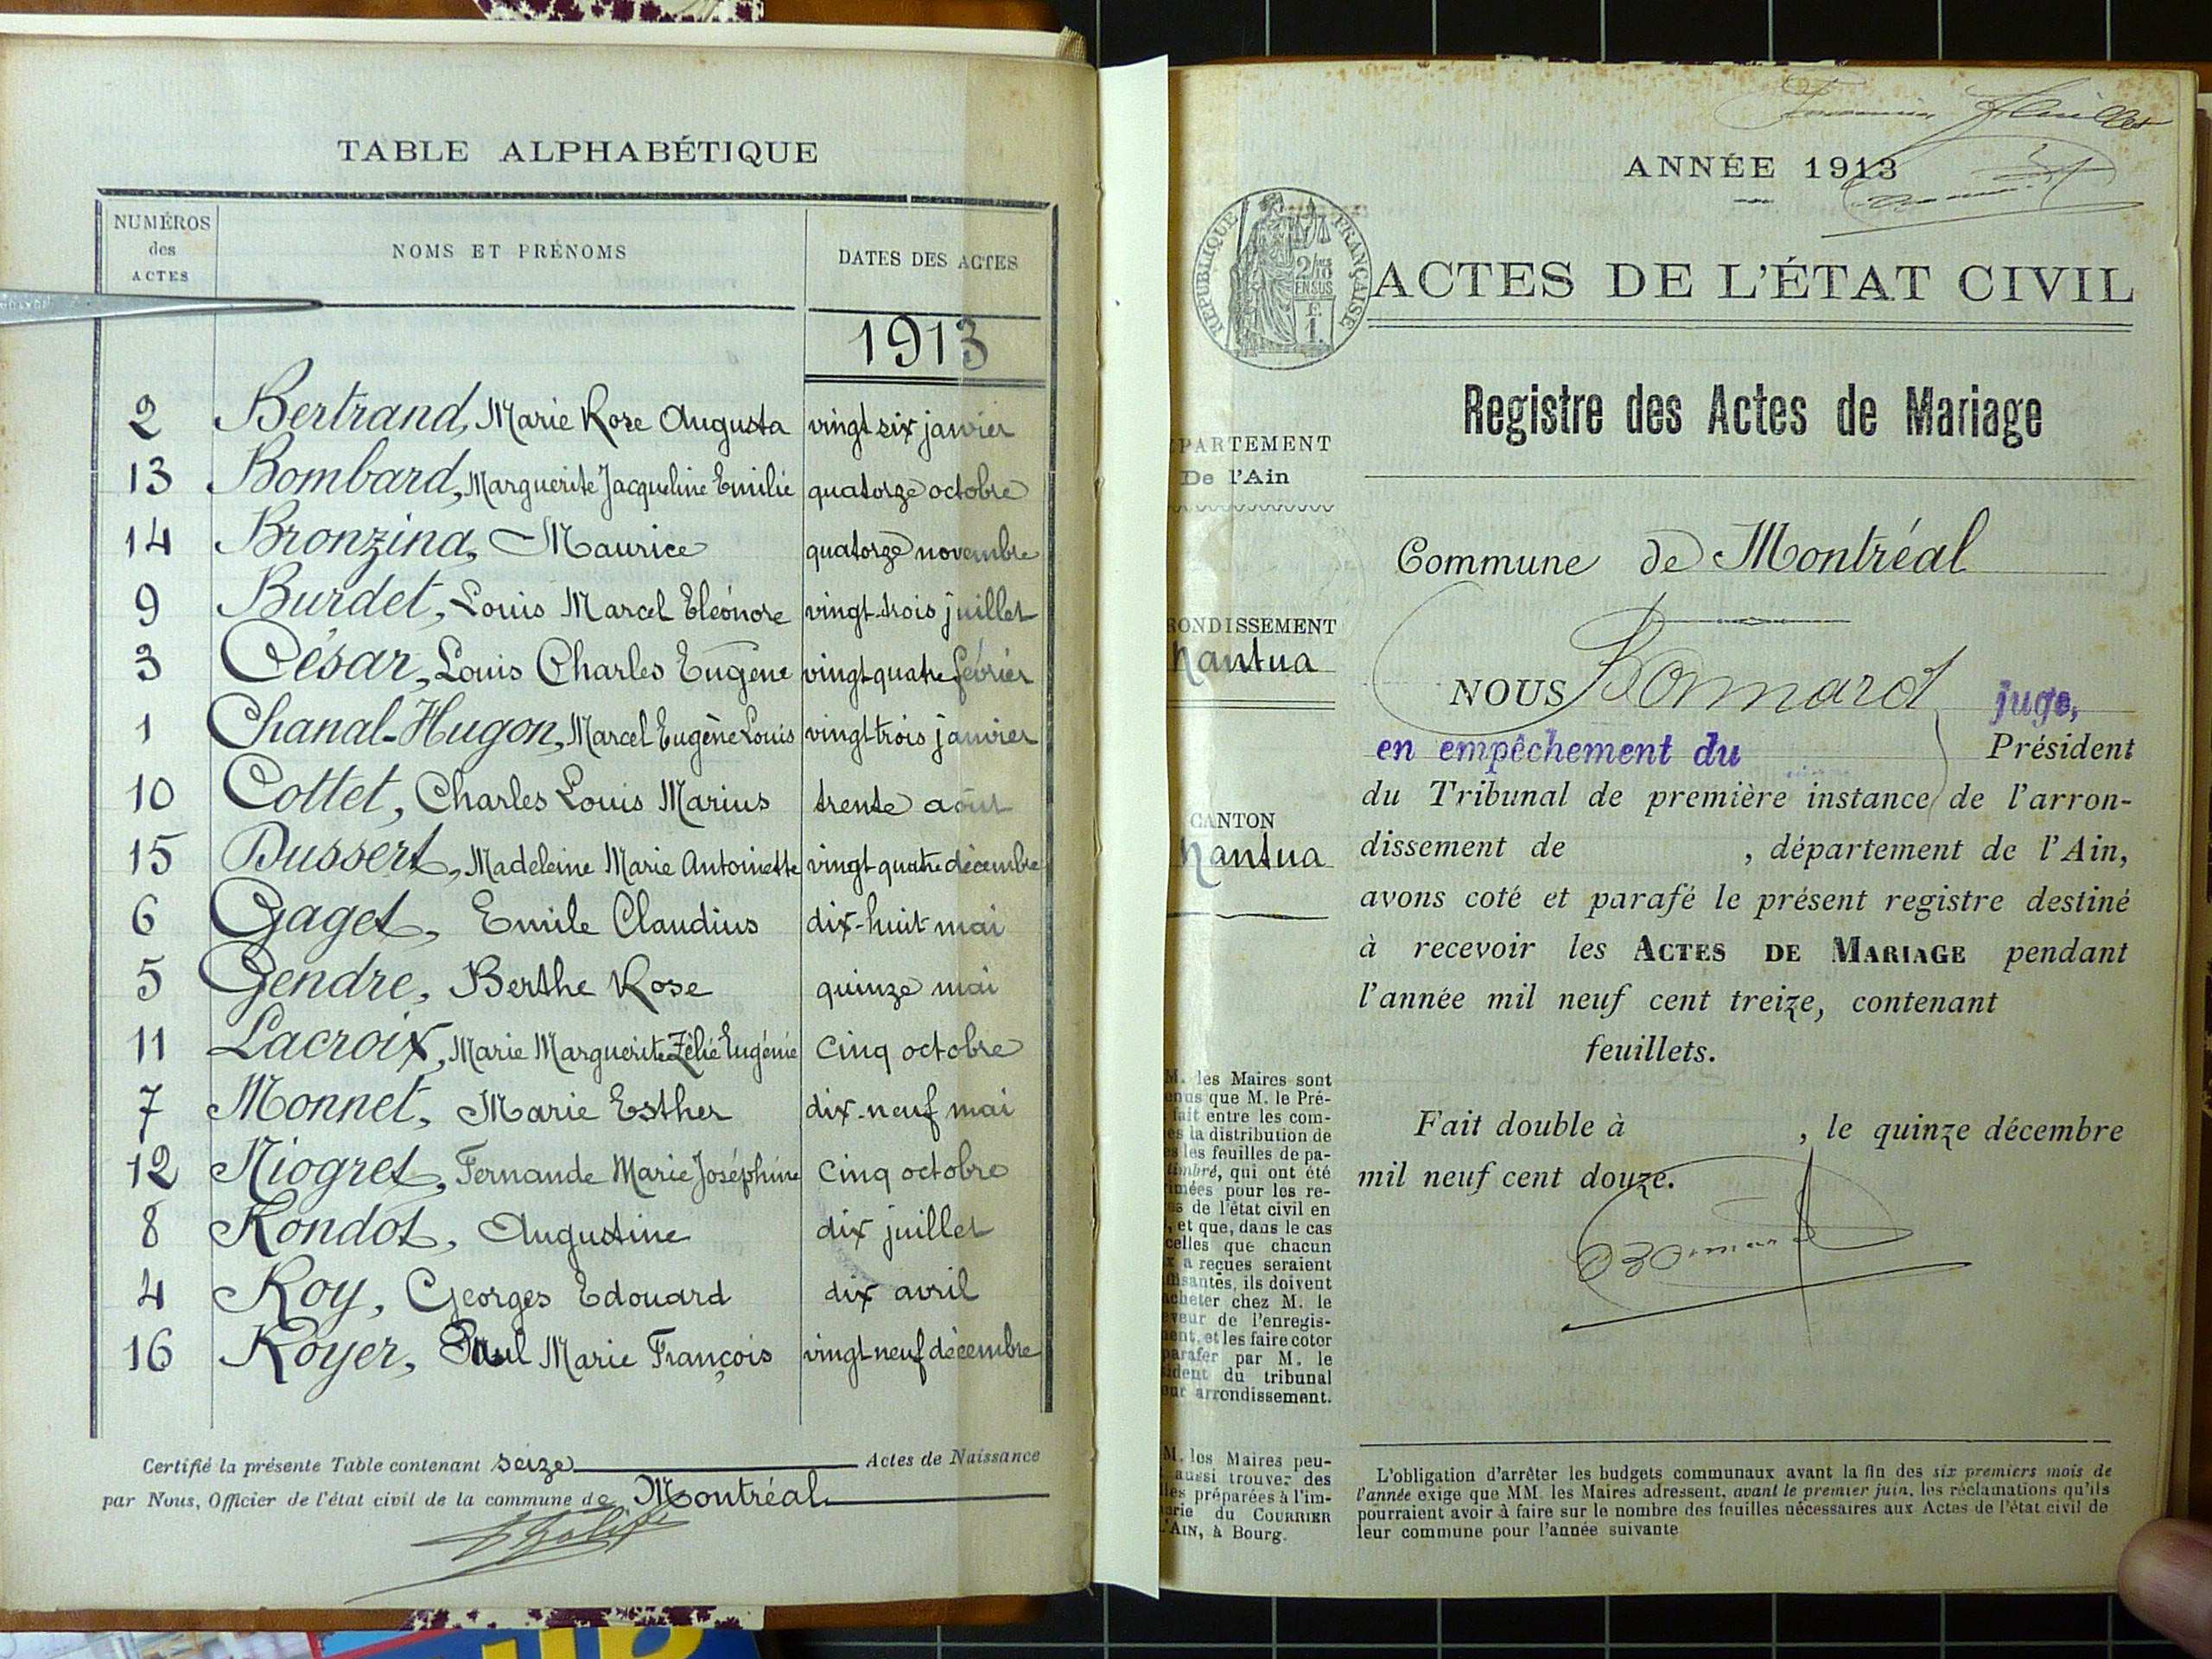 TABLE ALPHABÉTIQUE
NUMÉROS
des
ACTES
NOMS ET PRÉNOMS
DATES DES ACTES
1913
2 Bertrand, Marie Rose Augusta vingt six janvier
13 Bombard, Marguerite Jacqueline Emilie quatorze octobre
14 Bronzina, Maurice quatorze novembre
9 Burdet, Louis Marcel Eléonore vingt-trois juillet
3 César, Louis Charles Eugène vingt quatre février
1 Chanal-Hugon, Marcel Eugène Louis vingt trois janvier
10 Cottet, Charles Louis Marius trente août
15 Dussert, Madeleine Marie Antoinette vingt quatre décembre
6 Gaget, Emile Claudius dix-huit mai
5 Gendre, Berthe Rose quinze mai
11 Lacroix, Marie Marguerite Zélie Eugénie cinq octobre
7 Monnet, Marie Esther dix-neuf mai
12 Niogret, Fernande Marie Joséphine cinq octobre
8 Rondot, Augustine dix juillet
4 Roy, Georges Edouard dix avril
16 Royer, Paul Marie François vingt neuf décembre
Certifié la présente Table contenant seize Actes de Naissance
par Nous, Officier de l'état civil de la commune de Montréal
ANNÉE 1913
RÉPUBLIQUE FRANÇAISE
2/10es
EN SUS
f.
1.
ACTES DE L'ÉTAT CIVIL
Registre des Actes de Mariage
PARTEMENT
De l'Ain
Commune de Montréal
RONDISSEMENT
Nantua
CANTON
Nantua
NOUS Bonnard juge,
en empêchement du Président
du Tribunal de première instance de l'arron-
dissement de , département de l'Ain,
avons coté et parafé le présent registre destiné
à recevoir les ACTES DE MARIAGE pendant
l'année mil neuf cent treize, contenant
feuillets.
Fait double à , le quinze décembre
mil neuf cent douze.
M. les Maires sont
que M. le Pré-
fait entre les com-
la distribution de
les feuilles de pa-
timbré, qui ont été
pour les re-
de l'état civil en
, et que, dans le cas
celles que chacun
a reçues seraient
, ils doivent
acheter chez M. le
de l'enregis-
et les faire coter
parafer par M. le
du tribunal
arrondissement.
M. les Maires peu-
aussi trouver des
préparées à l'im-
du COURRIER
L'AIN, à Bourg.
L'obligation d'arrêter les budgets communaux avant la fin des six premiers mois de
l'année exige que MM. les Maires adressent, avant le premier juin, les réclamations qu'ils
pourraient avoir à faire sur le nombre des feuilles nécessaires aux Actes de l'état civil de
leur commune pour l'année suivante